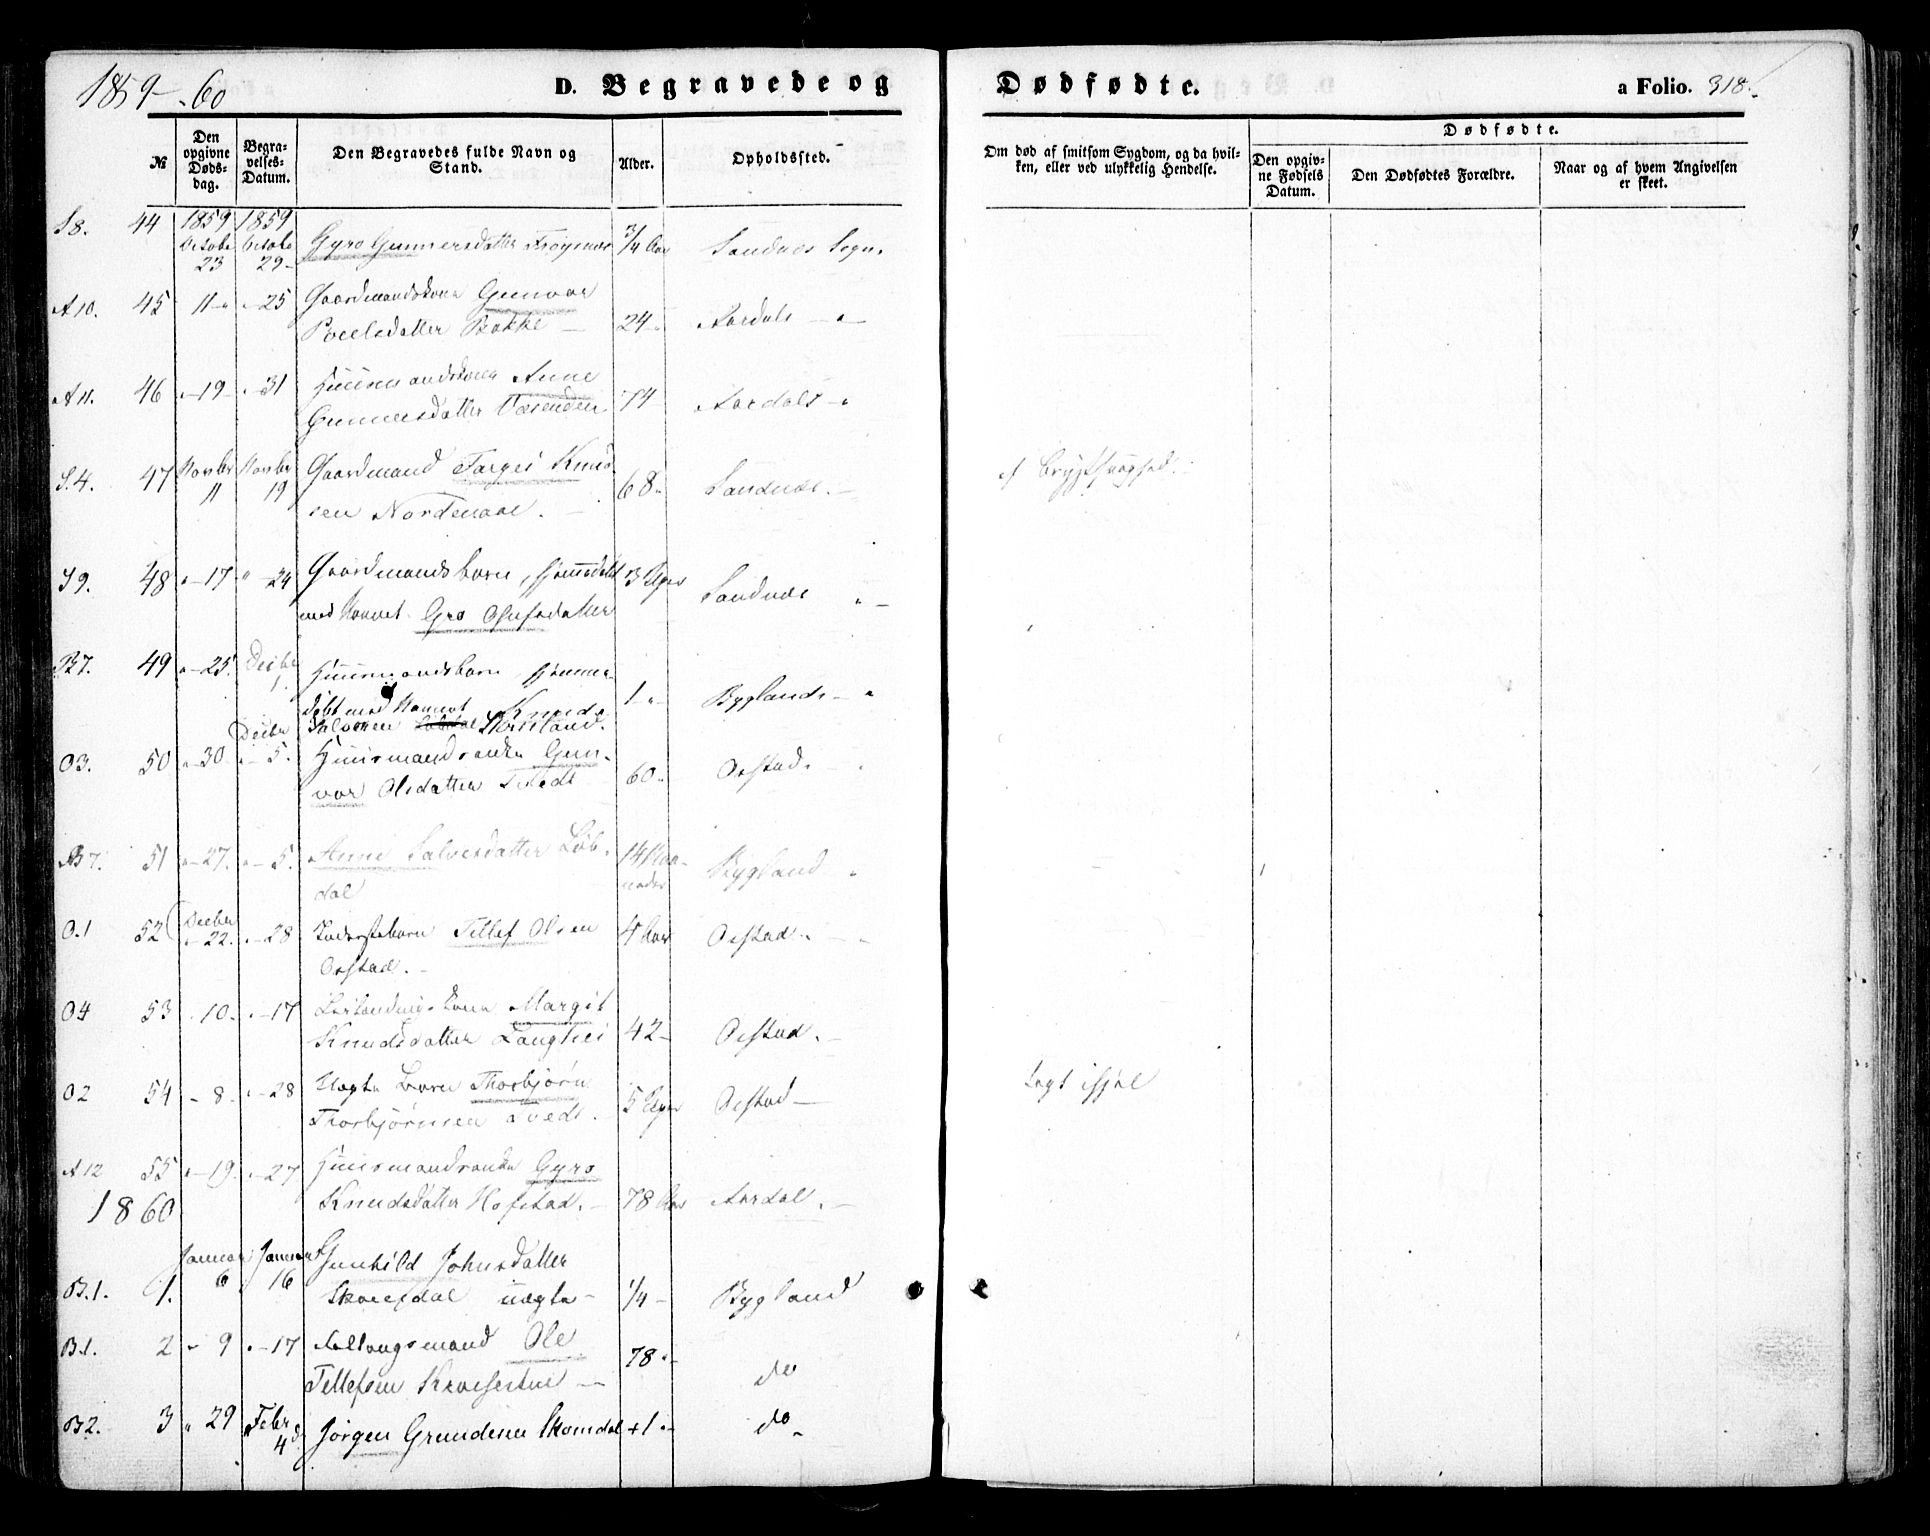 1859-60
D. Begravede og
Dødfødte.
a Folio. 318.
№
Den opgivne Dødsdag.
Begravelses-Datum.
Den Begravedes fulde Navn og Stand.
Alder.
Opholdssted.
Om død af smitsom Sygdom, og da hvilken, eller ved ulykkelig Hendelse.
Dødfødte.
Den opgivne Fødsels Datum.
Den Dødfødtes Forældre.
Naar og af hvem Angivelsen er skeet.
S8. 44 1859 Octobr 23 1859 Octobr 29- Gyro Gunnersdatter Frøysnæs 3/4 Aar Sandnæs Sogn.
A10. 45 11-" "-25 Gaardmandskone Gunvor
Poelsdatter Bakke — 24-" Aardals -"-
A11. 46 "-19- "-31 Huusmandskone Anne
Gunnersdatter Væsenden 74 Aardals -"
S.4. 47 Novbr 11 Novbr 19 Gaardmand Targei Knud-
sen Nordenaae. - 68" Sandnæs. -
S9. 48 "-17 "-24 Gaardmandsbarn, hjemmedøbt 3 Uger
med Navnet Gro Olufsdatter Sandnæs "-
B7. 49 "-25. Decbr 1. Huusmandsbarn hjemme-
døbt med Navnet Knud 1-"- Byglands -"
Salvesen
O3. 50 "-30 Decbr "-5. Huusmandsenke Gun-
vor Olsdatter Tvedt 60" Oestad. -
B7. 51 "-27. "-5. Anne Salvesdatter Løb-
dal 14 Maaneder Bygland -"
O.1 52 Decbr "-22. "-28 Inderstebarn Tellef Olsen
Oestad. - 4 Aar Oestad. -
O4 53 -10- "-17 kone Margit
Knudsdatter Langhei 42- Oestad. -
O2 54 -8- "-28 Uægte Barn Thorbjørn
Thorbjørnsen Tvedt. - 5 Uger Oestad —
A12 55 "-19. "-27 Huusmandsenke Gyro
Knudsdatter Hofstad. - 78 Aar Aardal. -
1860
B.1. 1. Januar 6 Januar 16 Gunhild Johnsdatter
uægte - 1/4- Bygland
B1. 2 -9 "-17 Ole
Tellefsen — 78"- do
B2. 3 " 29 Febr 4 Jørgen Skomdal +1"- do -